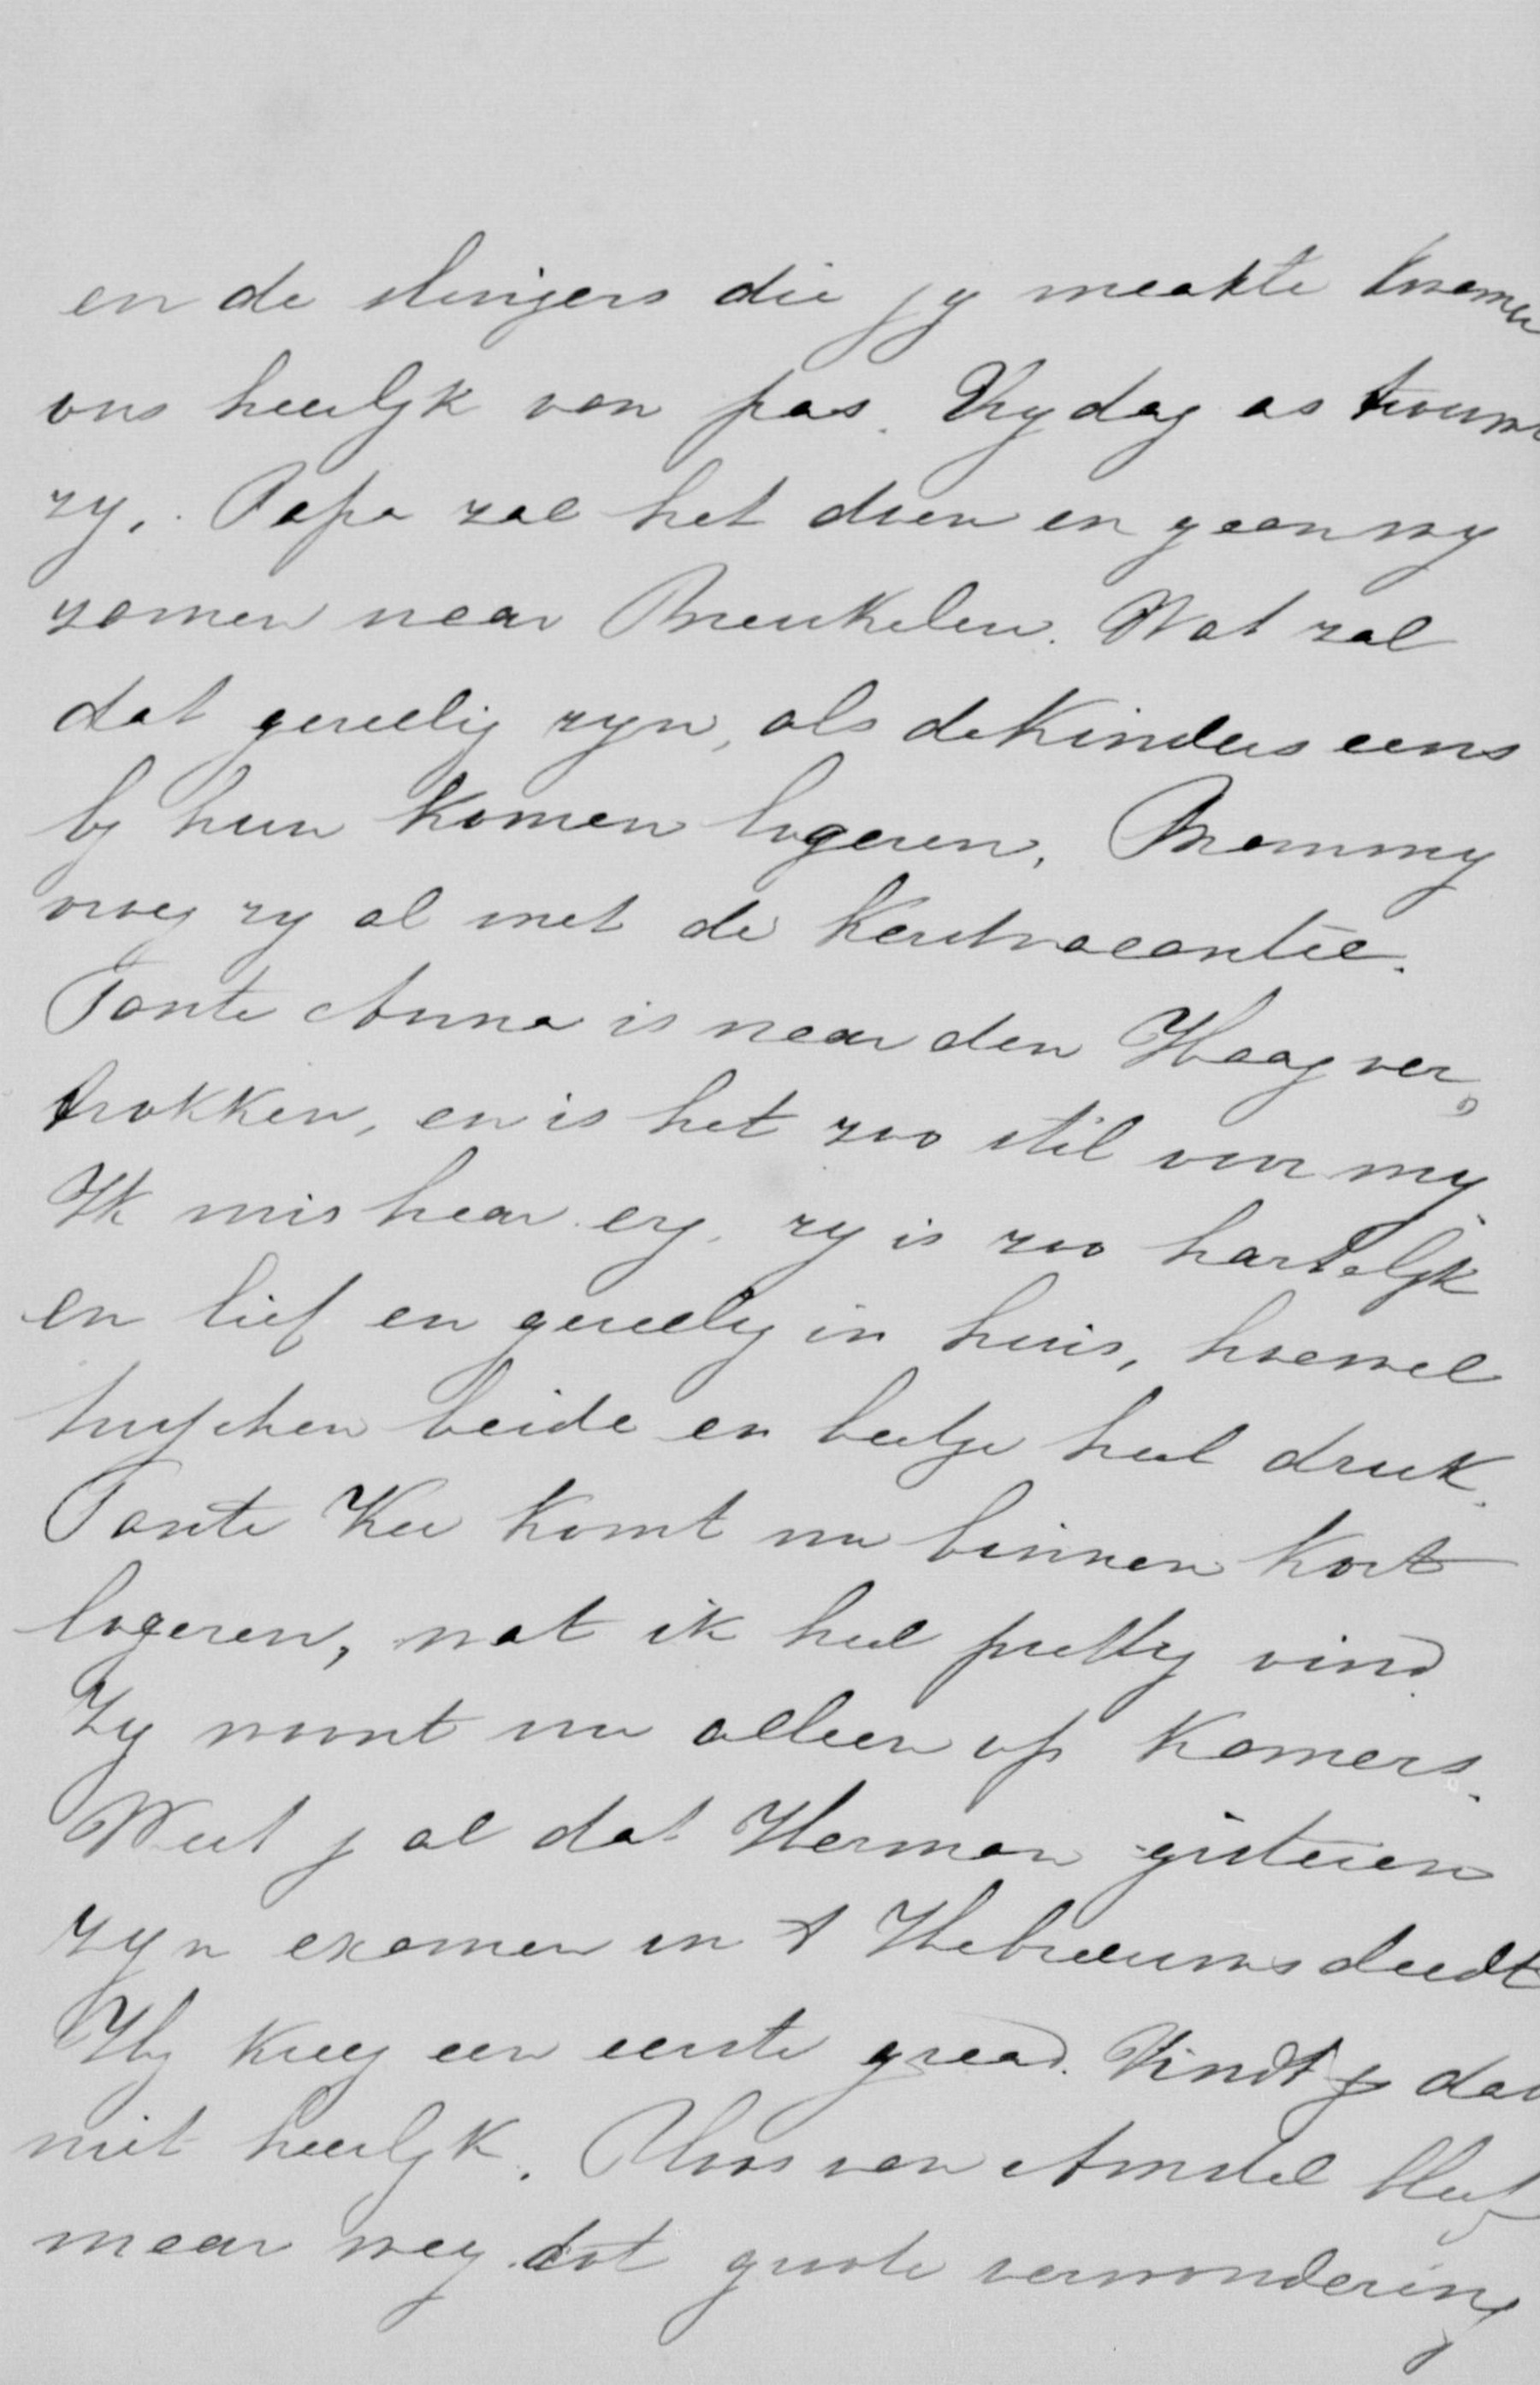 en de slingers die jy maakte kwamen
ons heerlyk van pas. Vrydag as trouwen
zy. Papa zal het doen en gaan wy
zamen naar Breukelen. Wat zal
dat gezellig zyn, als de Kinders eens
by hun komen logeren,
vroeg zy al met de Kerstvacantie.
Tante Anna is naar den Haag ver
trokken, en is het zoo stil voor my
Ik mis haar erg, zy is zoo hartelyk
en lief en gezellig in huis, hoewel
beide en beetje heel druk.
Tante Kee komt nu binnen kort
logeren, wat ik heel prettig vind
Zy woont nu alleen op Kamers.
Weet j al dat Herman gisteren
zyn examen in t Hebreeuws deedt
Hy kreeg een eerste graad. Vindt je dat
niet heerlyk. van Amstel bleef
maar weg tot groote verwondering